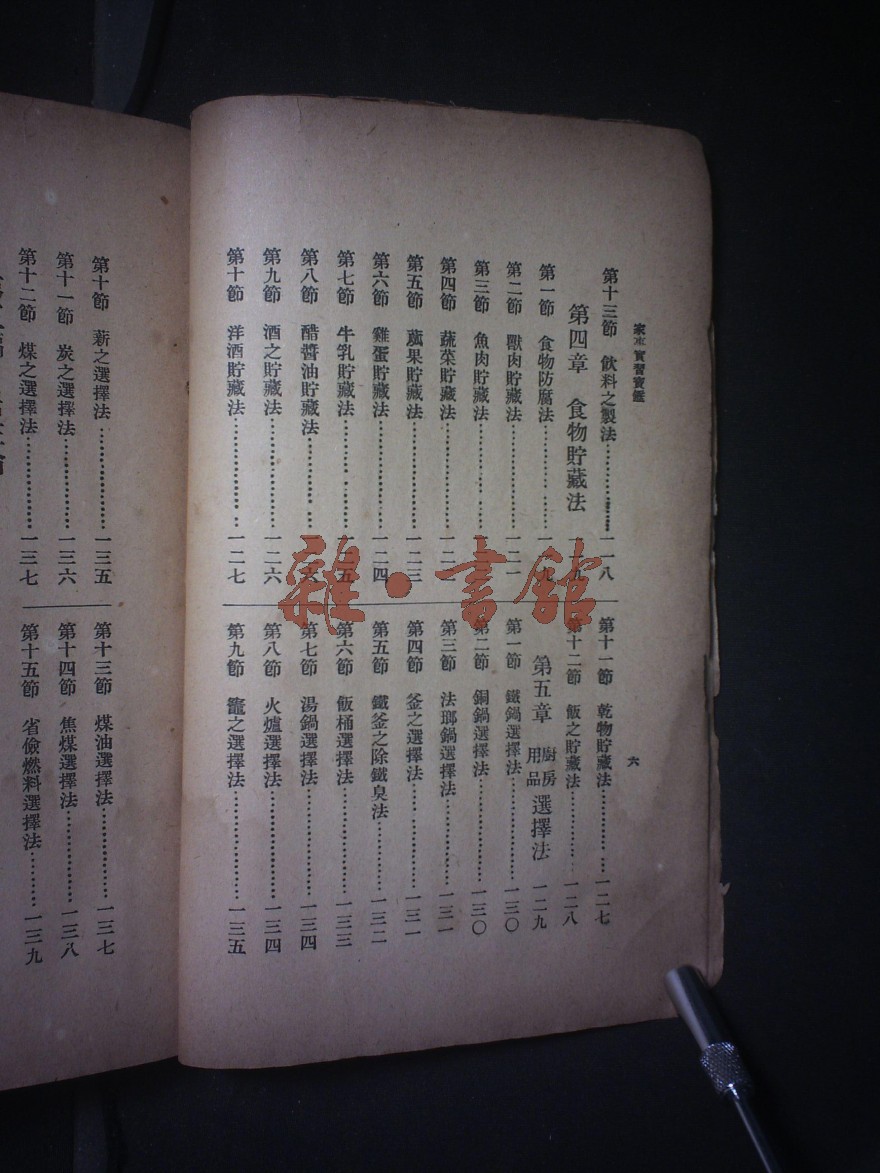 家實習寶鑑
第十三節 飲料之製法…………一一八
第四章 食物貯藏法 一一九
第一節 食物防腐法…………一一九
第二節 獸肉貯藏法…………一二一
第三節 魚肉貯藏法…………
第四節 蔬菜貯藏法…………一二
第五節 蔬果貯藏法…………一二三
第六節 雞蛋貯藏法…………一二四
第七節 牛乳貯藏法…………五
第八節 醋醬油貯藏法…………六
第九節 酒之貯藏法…………一二六
第十節 洋酒貯藏法…………一二七
第十一節 乾物貯藏法…………一二七
第十二節 飯之貯藏法…………一二八
第五章 廚房用品選擇法 一二九
第一節 鐵鍋選擇法…………一三〇
第二節 銅鍋選擇法…………一三〇
第三節 法瑯鍋選擇法…………一三一
第四節 釜之選擇法…………一三一
第五節 鐵釜之除鐵臭法…………一三二
第六節 飯桶選擇法…………一三三
第七節 湯鍋選擇法…………一三四
第八節 火爐選擇法…………一三四
第九節 竈之選擇法…………一三五
六
第十節 薪之選擇法…………一三五
第十一節 炭之選擇法…………一三六
第十二節 煤之選擇法…………一三七
第十三節 煤油選擇法…………一三七
第十四節 焦煤選擇法…………一三八
第十五節 省儉燃料選擇法…………一三九
雜·書館